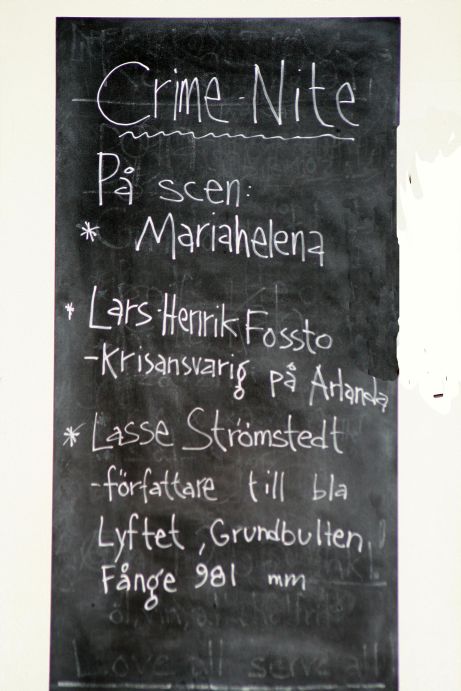 Crime-Nite
På scen:
* Mariahelena
* Lars-Henrik Fossto
-Krisansvarig på Arlanda
* Lasse Strömstedt
-författare till bla
Lyftet, Grundbulten,
Fånge 981 mm
Love all serve all